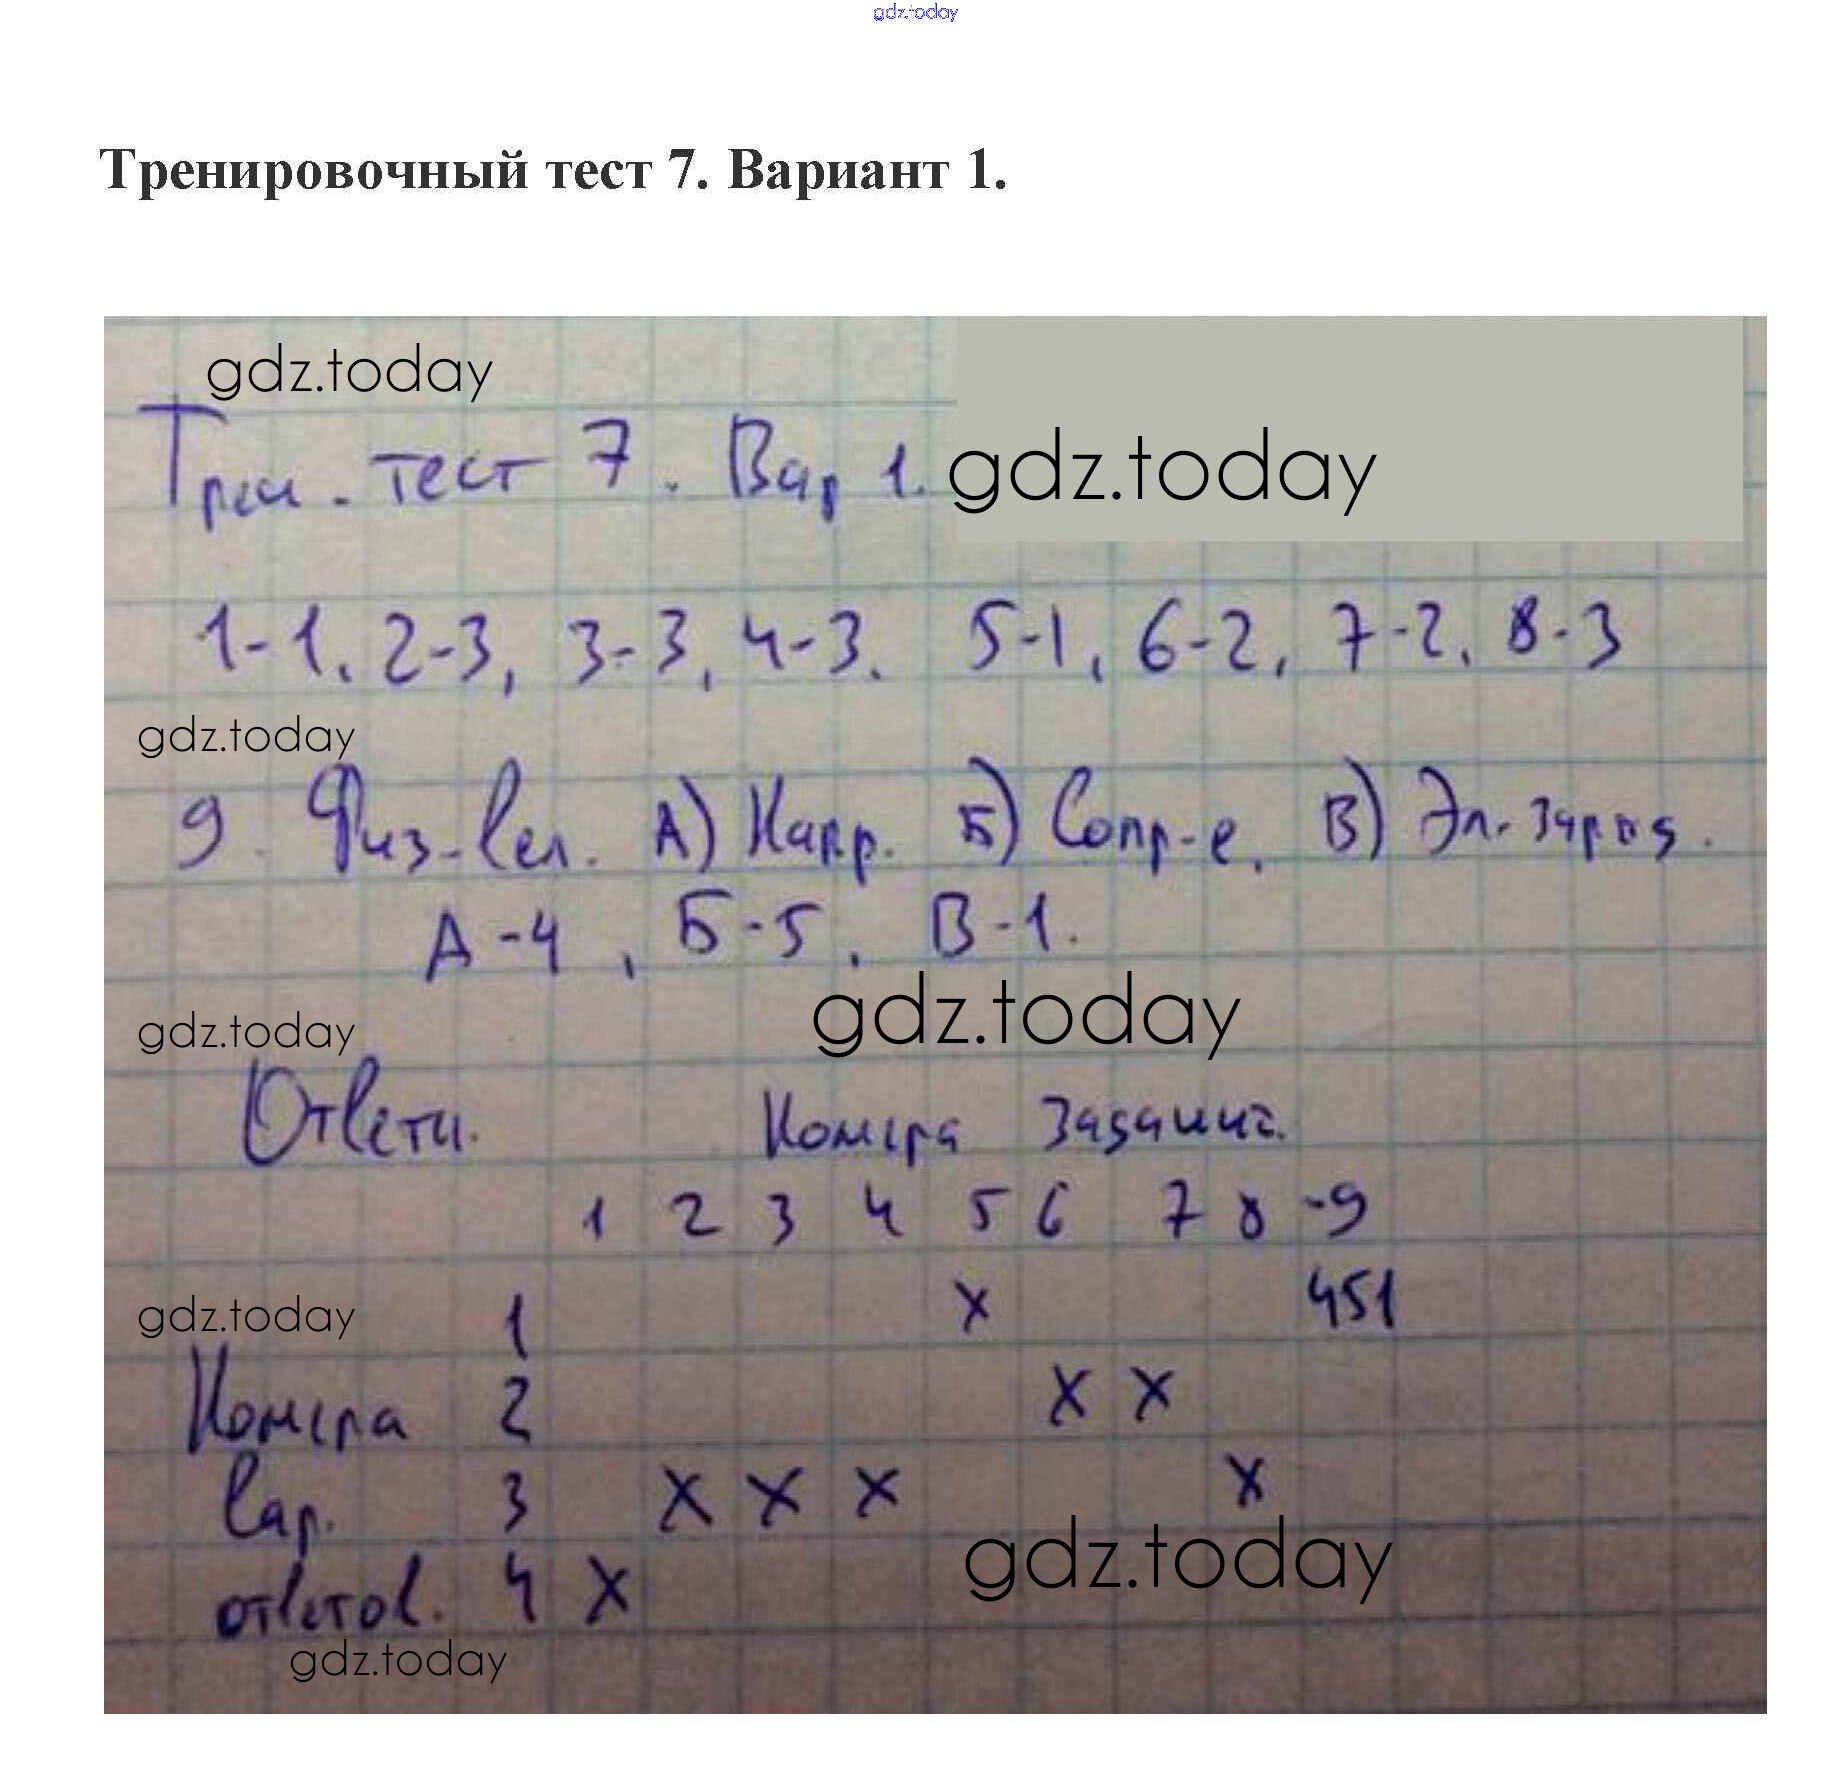 gdz.today
Тренировочный тест 7. Вариант 1.
gdz.today
Трен. тест 7. Вар 1. gdz.today
1-1, 2-3, 3-3, 4-3. 5-1, 6-2, 7-2, 8-3
gdz.today
9. Физ-вел. А) Напр. Б) Сопр-е. В) Эл. заряд.
А-4, Б-5, В-1.
gdz.today
gdz.today
Ответы. Номера заданий.
1 2 3 4 5 6 7 8 -9
gdz.today 1 x 451
Номера 2 x x
вар. 3 x x x x
gdz.today
ответов. 4 x
gdz.today